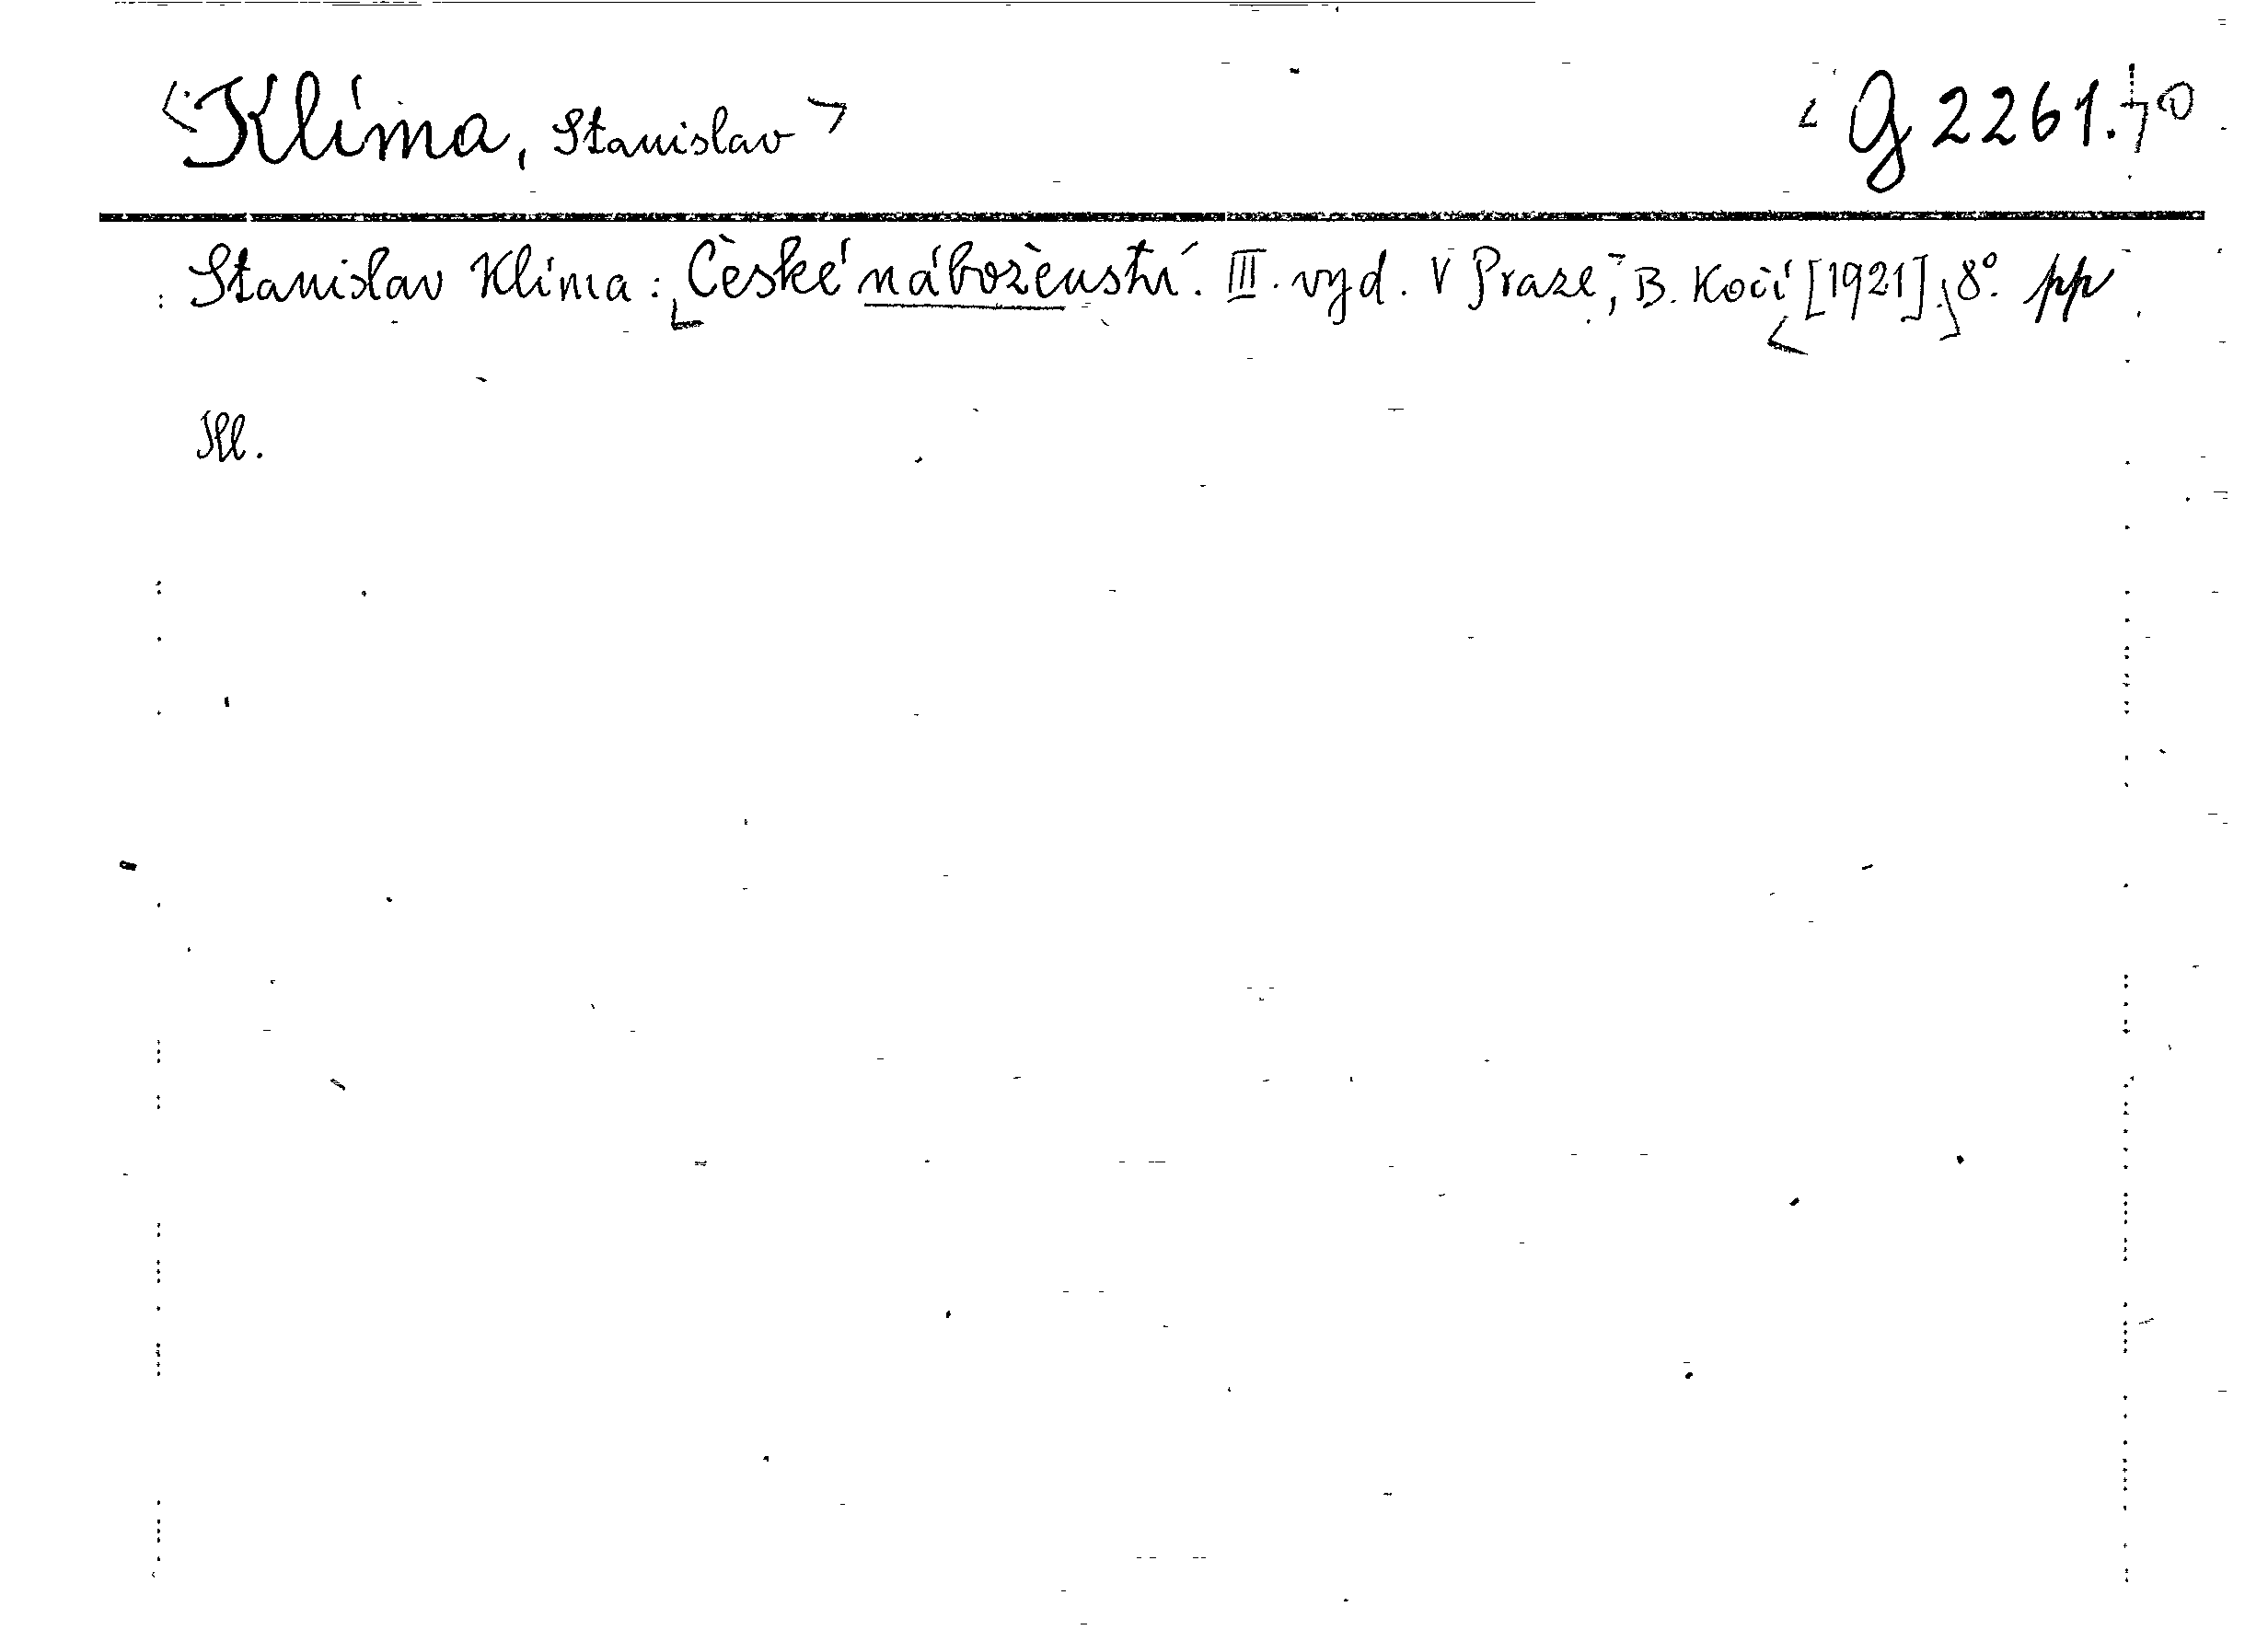 Klíma, Stanislav
G 2261.
Stanislav Klíma: České náboženství. III. vyd. V Praze, B. Kočí [1921]. 8°. pp
Ill.